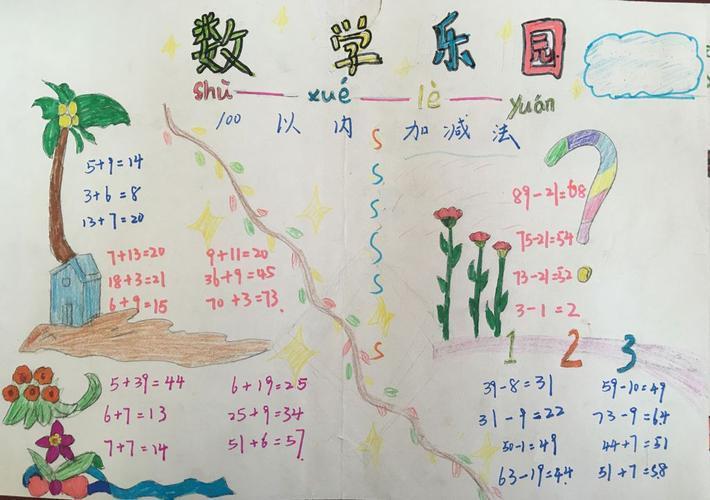 数学乐园
shù xué lè yuán
100以内加减法
5+9=14
3+6=8
13+7=20
7+13=20 9+11=20
18+3=21 36+9=45
6+9=15 70+3=73
5+39=44 6+19=25
6+7=13 25+9=34
7+7=14 51+6=57
89-21=68
75-21=54
73-21=52
3-1=2
1 2 3
39-8=31 59-10=49
31-9=22 73-9=64
50-1=49 44+7=51
63-19=44 51+7=58